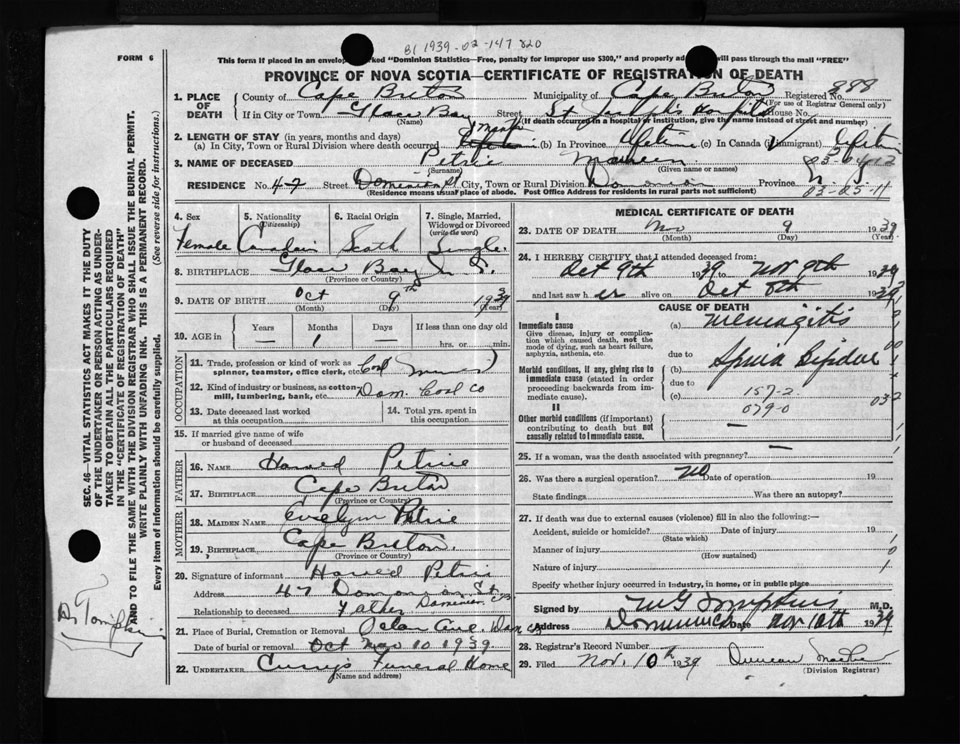 B1 1939-02-147820
FORM 6
This form if placed in an envelope marked "Dominion Statistics—Free, penalty for improper use $300," and properly addressed will pass through the mail "FREE"
PROVINCE OF NOVA SCOTIA—CERTIFICATE OF REGISTRATION OF DEATH
1. PLACE OF DEATH
County of Cape Breton Municipality of Cape Breton Registered No. 888
(For use of Registrar General only)
If in City or Town Glace Bay Street St. Joseph's Hospital House No.
(Name) (If death occurred in a hospital or institution, give the name instead of street and number)
2. LENGTH OF STAY (in years, months and days)
(a) In City, Town or Rural Division where death occurred (b) In Province Lifetime (c) In Canada (if immigrant) Lifetime
3. NAME OF DECEASED Petrie Maureen 03-0412
(Surname) (Given name or names)
RESIDENCE No. 47 Street Dominion St City, Town or Rural Division Dominion Province N S
(Residence means usual place of abode. Post Office Address for residents in rural parts not sufficient) 03-05-11
4. Sex
Female
5. Nationality (Citizenship)
Canadian
6. Racial Origin
Scotch
7. Single, Married, Widowed or Divorced (write the word)
Single
8. BIRTHPLACE Glace Bay N. S.
(Province or Country)
9. DATE OF BIRTH Oct 9th 1939
(Month) (Day) (Year)
10. AGE in Years Months Days If less than one day old
— 1 — hrs. or min.
OCCUPATION
11. Trade, profession or kind of work as spinner, teamster, office clerk, etc. Coal
12. Kind of industry or business, as cotton mill, lumbering, bank, etc. Dom. Coal Co
13. Date deceased last worked at this occupation
14. Total yrs. spent in this occupation
15. If married give name of wife or husband of deceased
FATHER
16. NAME Howard Petrie
17. BIRTHPLACE Cape Breton
(Province or Country)
MOTHER
18. MAIDEN NAME Evelyn Petrie
19. BIRTHPLACE Cape Breton.
(Province or Country)
20. Signature of informant Howard Petrie
Address 47 Dominion St. Dominion CB
Relationship to deceased Father
21. Place of Burial, Cremation or Removal
Date of burial or removal Nov 10 1939
22. UNDERTAKER Curry's Funeral Home
(Name and address)
MEDICAL CERTIFICATE OF DEATH
23. DATE OF DEATH Nov 9 1939
(Month) (Day) (Year)
24. I HEREBY CERTIFY that I attended deceased from:
Oct 9th 1939 to Nov 9th 1939
and last saw h er alive on Oct 8th 1939
CAUSE OF DEATH
I
Immediate cause
Give disease, injury or complication which caused death, not the mode of dying, such as heart failure, asphyxia, asthenia, etc
(a) Meningitis
due to
Morbid conditions, if any, giving rise to immediate cause (stated in order proceeding backwards from immediate cause).
(b) Spina Bifida
due to
(c) 157-2
079-0
032
II
Other morbid conditions (if important) contributing to death but not causally related to immediate cause. —
25. If a woman, was the death associated with pregnancy? —
26. Was there a surgical operation? No Date of operation 19
State findings Was there an autopsy?
27. If death was due to external causes (violence) fill in also the following:—
Accident, suicide or homicide? Date of injury 19
(State which)
Manner of injury
(How sustained)
Nature of injury
Specify whether injury occurred in industry, in home, or in public place
Signed by M G Tompkins M.D.
Address Dominion Date Nov 10th 1939
28. Registrar's Record Number
29. Filed Nov. 10th 1939 Duncan
(Division Registrar)
SEC. 46—VITAL STATISTICS ACT MAKES IT THE DUTY
OF THE UNDERTAKER OR PERSON ACTING AS UNDER-
TAKER TO OBTAIN ALL THE PARTICULARS REQUIRED
IN THE "CERTIFICATE OF REGISTRATION OF DEATH"
AND TO FILE THE SAME WITH THE DIVISION REGISTRAR WHO SHALL ISSUE THE BURIAL PERMIT.
WRITE PLAINLY WITH UNFADING INK. THIS IS A PERMANENT RECORD.
Every item of information should be carefully supplied. (See reverse side for instructions.)
Dr Tompkins